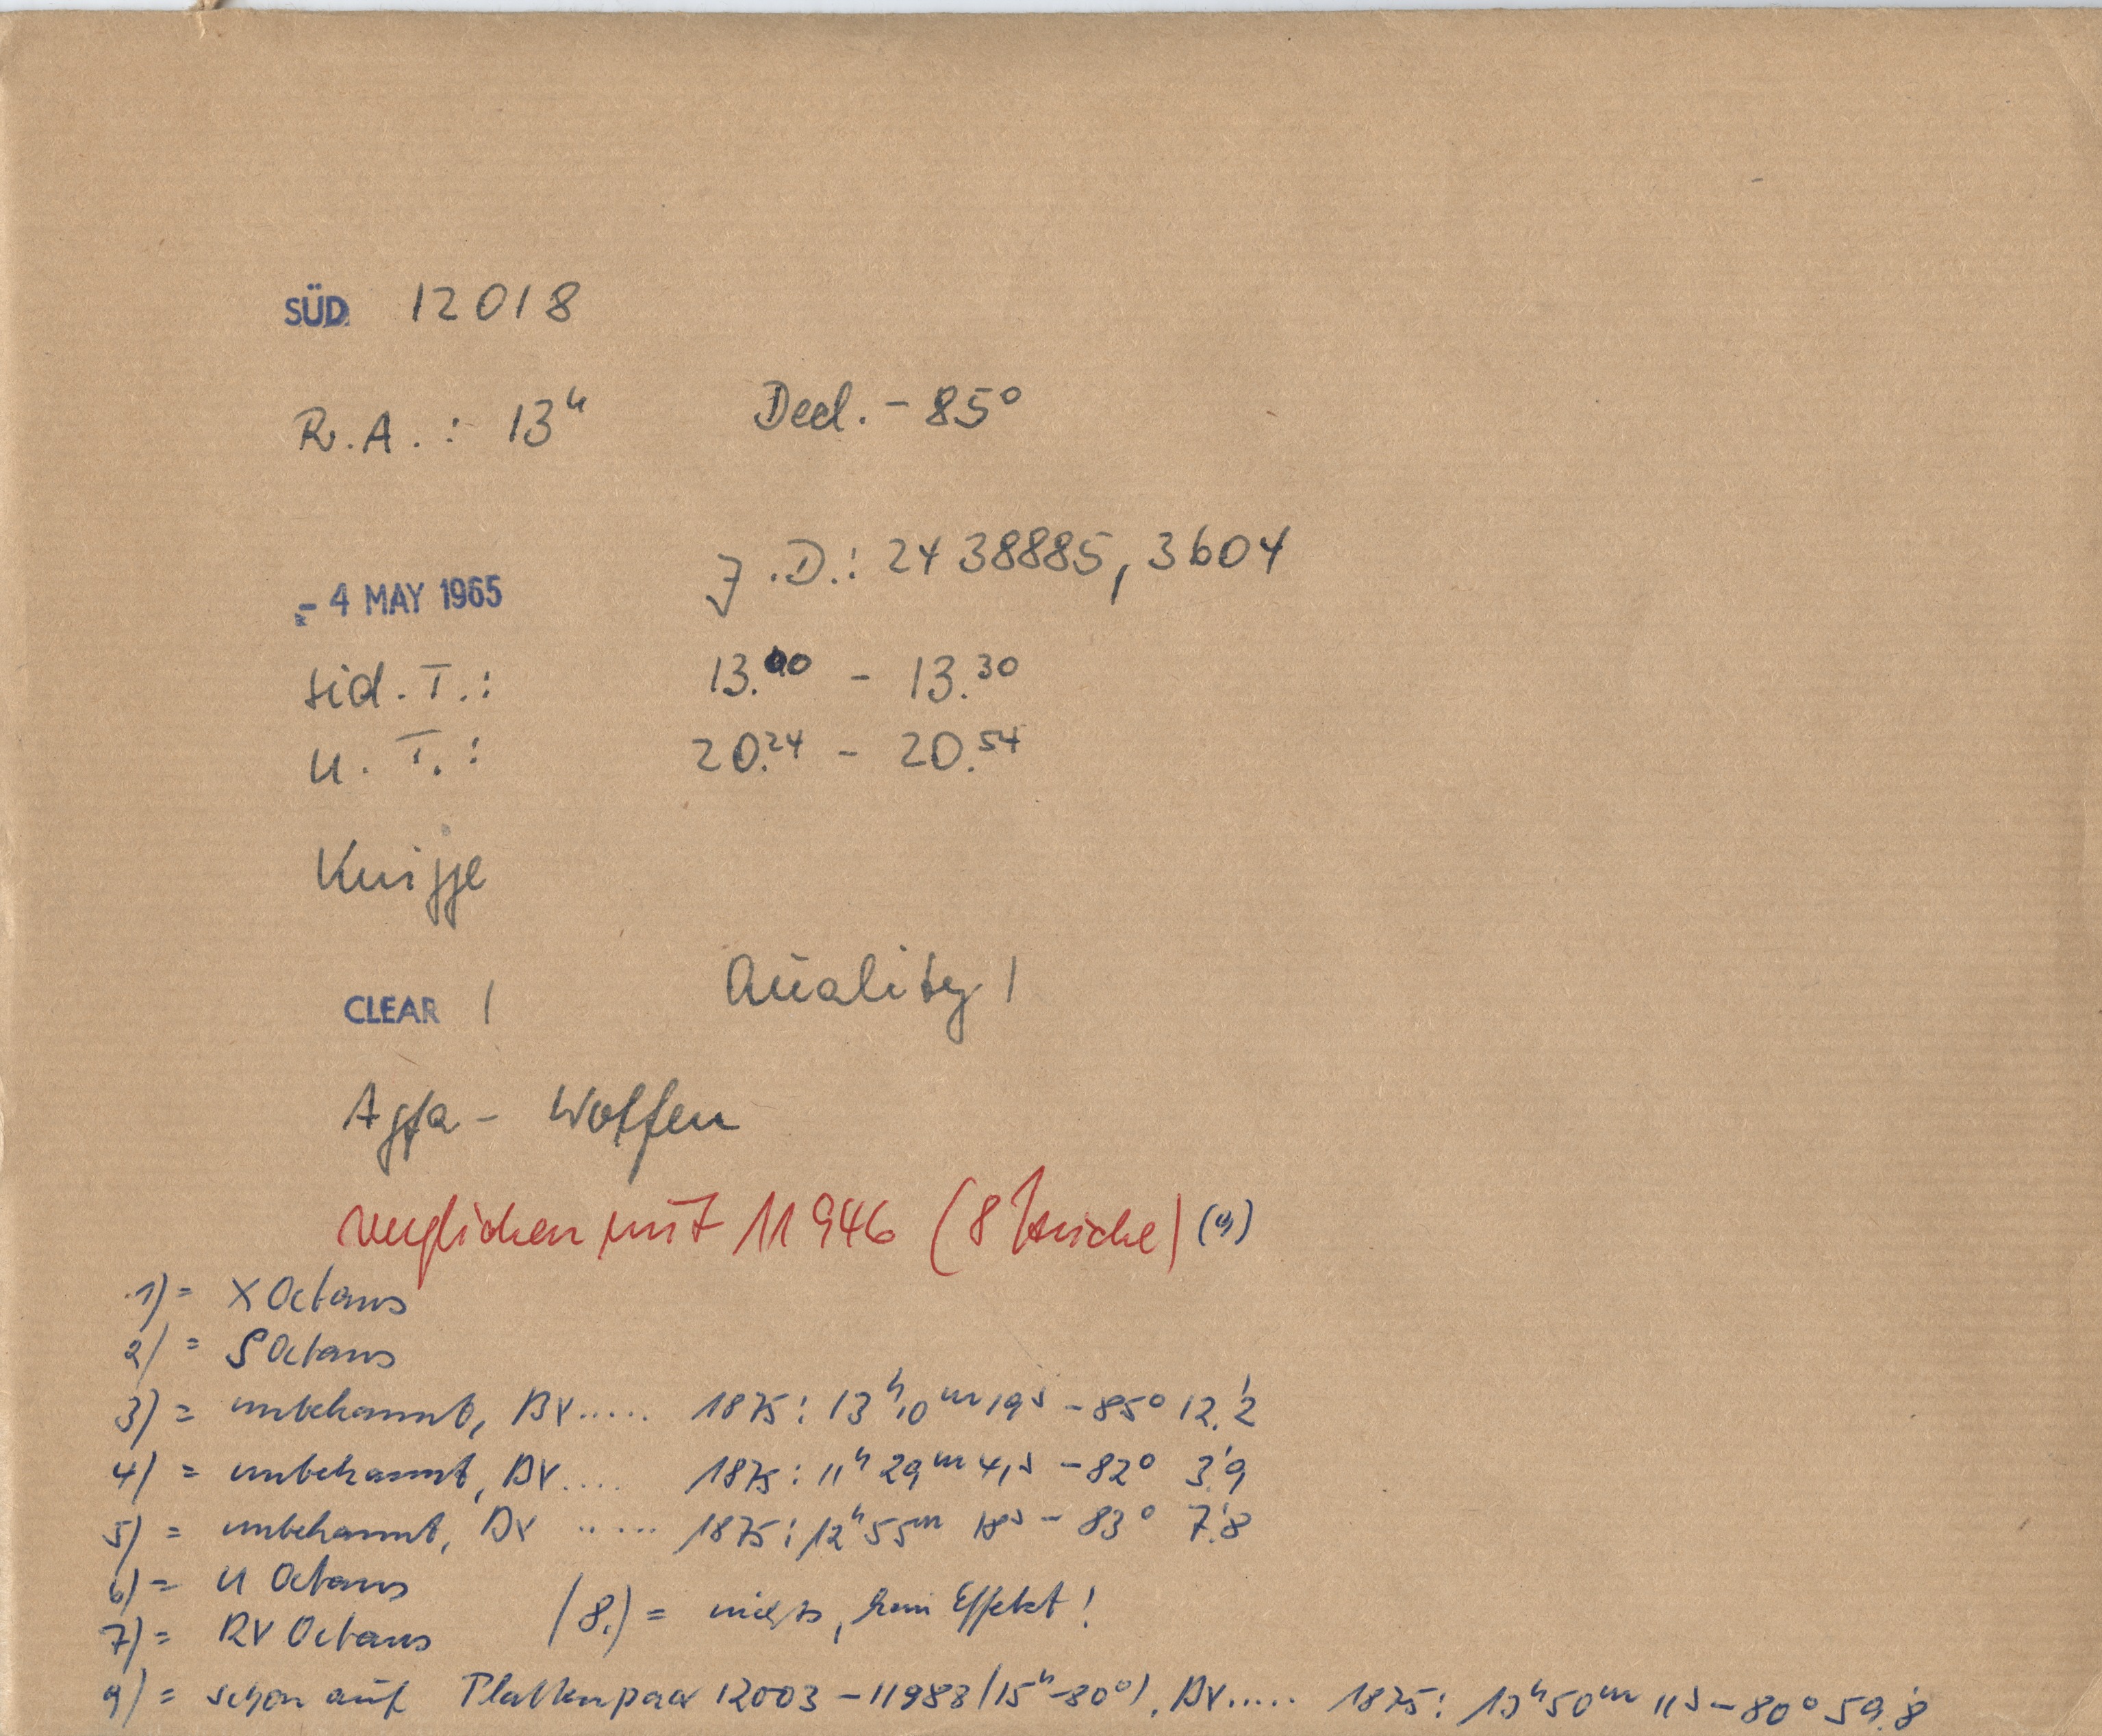 SÜD 12018
R.A.: 13ʰ Decl. - 85°
J.D.: 2438885,3604
- 4 MAY 1965
Sid. T.: 13.00 - 13.30
U. T.: 20.24 - 20.54
Knigge
CLEAR 1 Quality 1
Agfa - Wolfen
verglichen mit 11946 (8 Striche) (9)
1) = X Octans
2) = S Octans
3) = unbekannt, BV..... 1875: 13ʰ10ᵐ19ˢ -85° 12.'2
4) = unbekannt, BV.... 1875: 11ʰ29ᵐ41ˢ -82° 3.'9
5) = unbekannt, BV ..... 1875: 12ʰ55ᵐ 18ˢ - 83° 7.'8
6) = U Octans
7) = RV Octans (8.) = nichts, kein Effekt!
9) = schon auf Plattenpaar 12003 - 11988 (15ʰ -80°), BV..... 1875: 13ʰ50ᵐ 11ˢ - 80° 59.'8